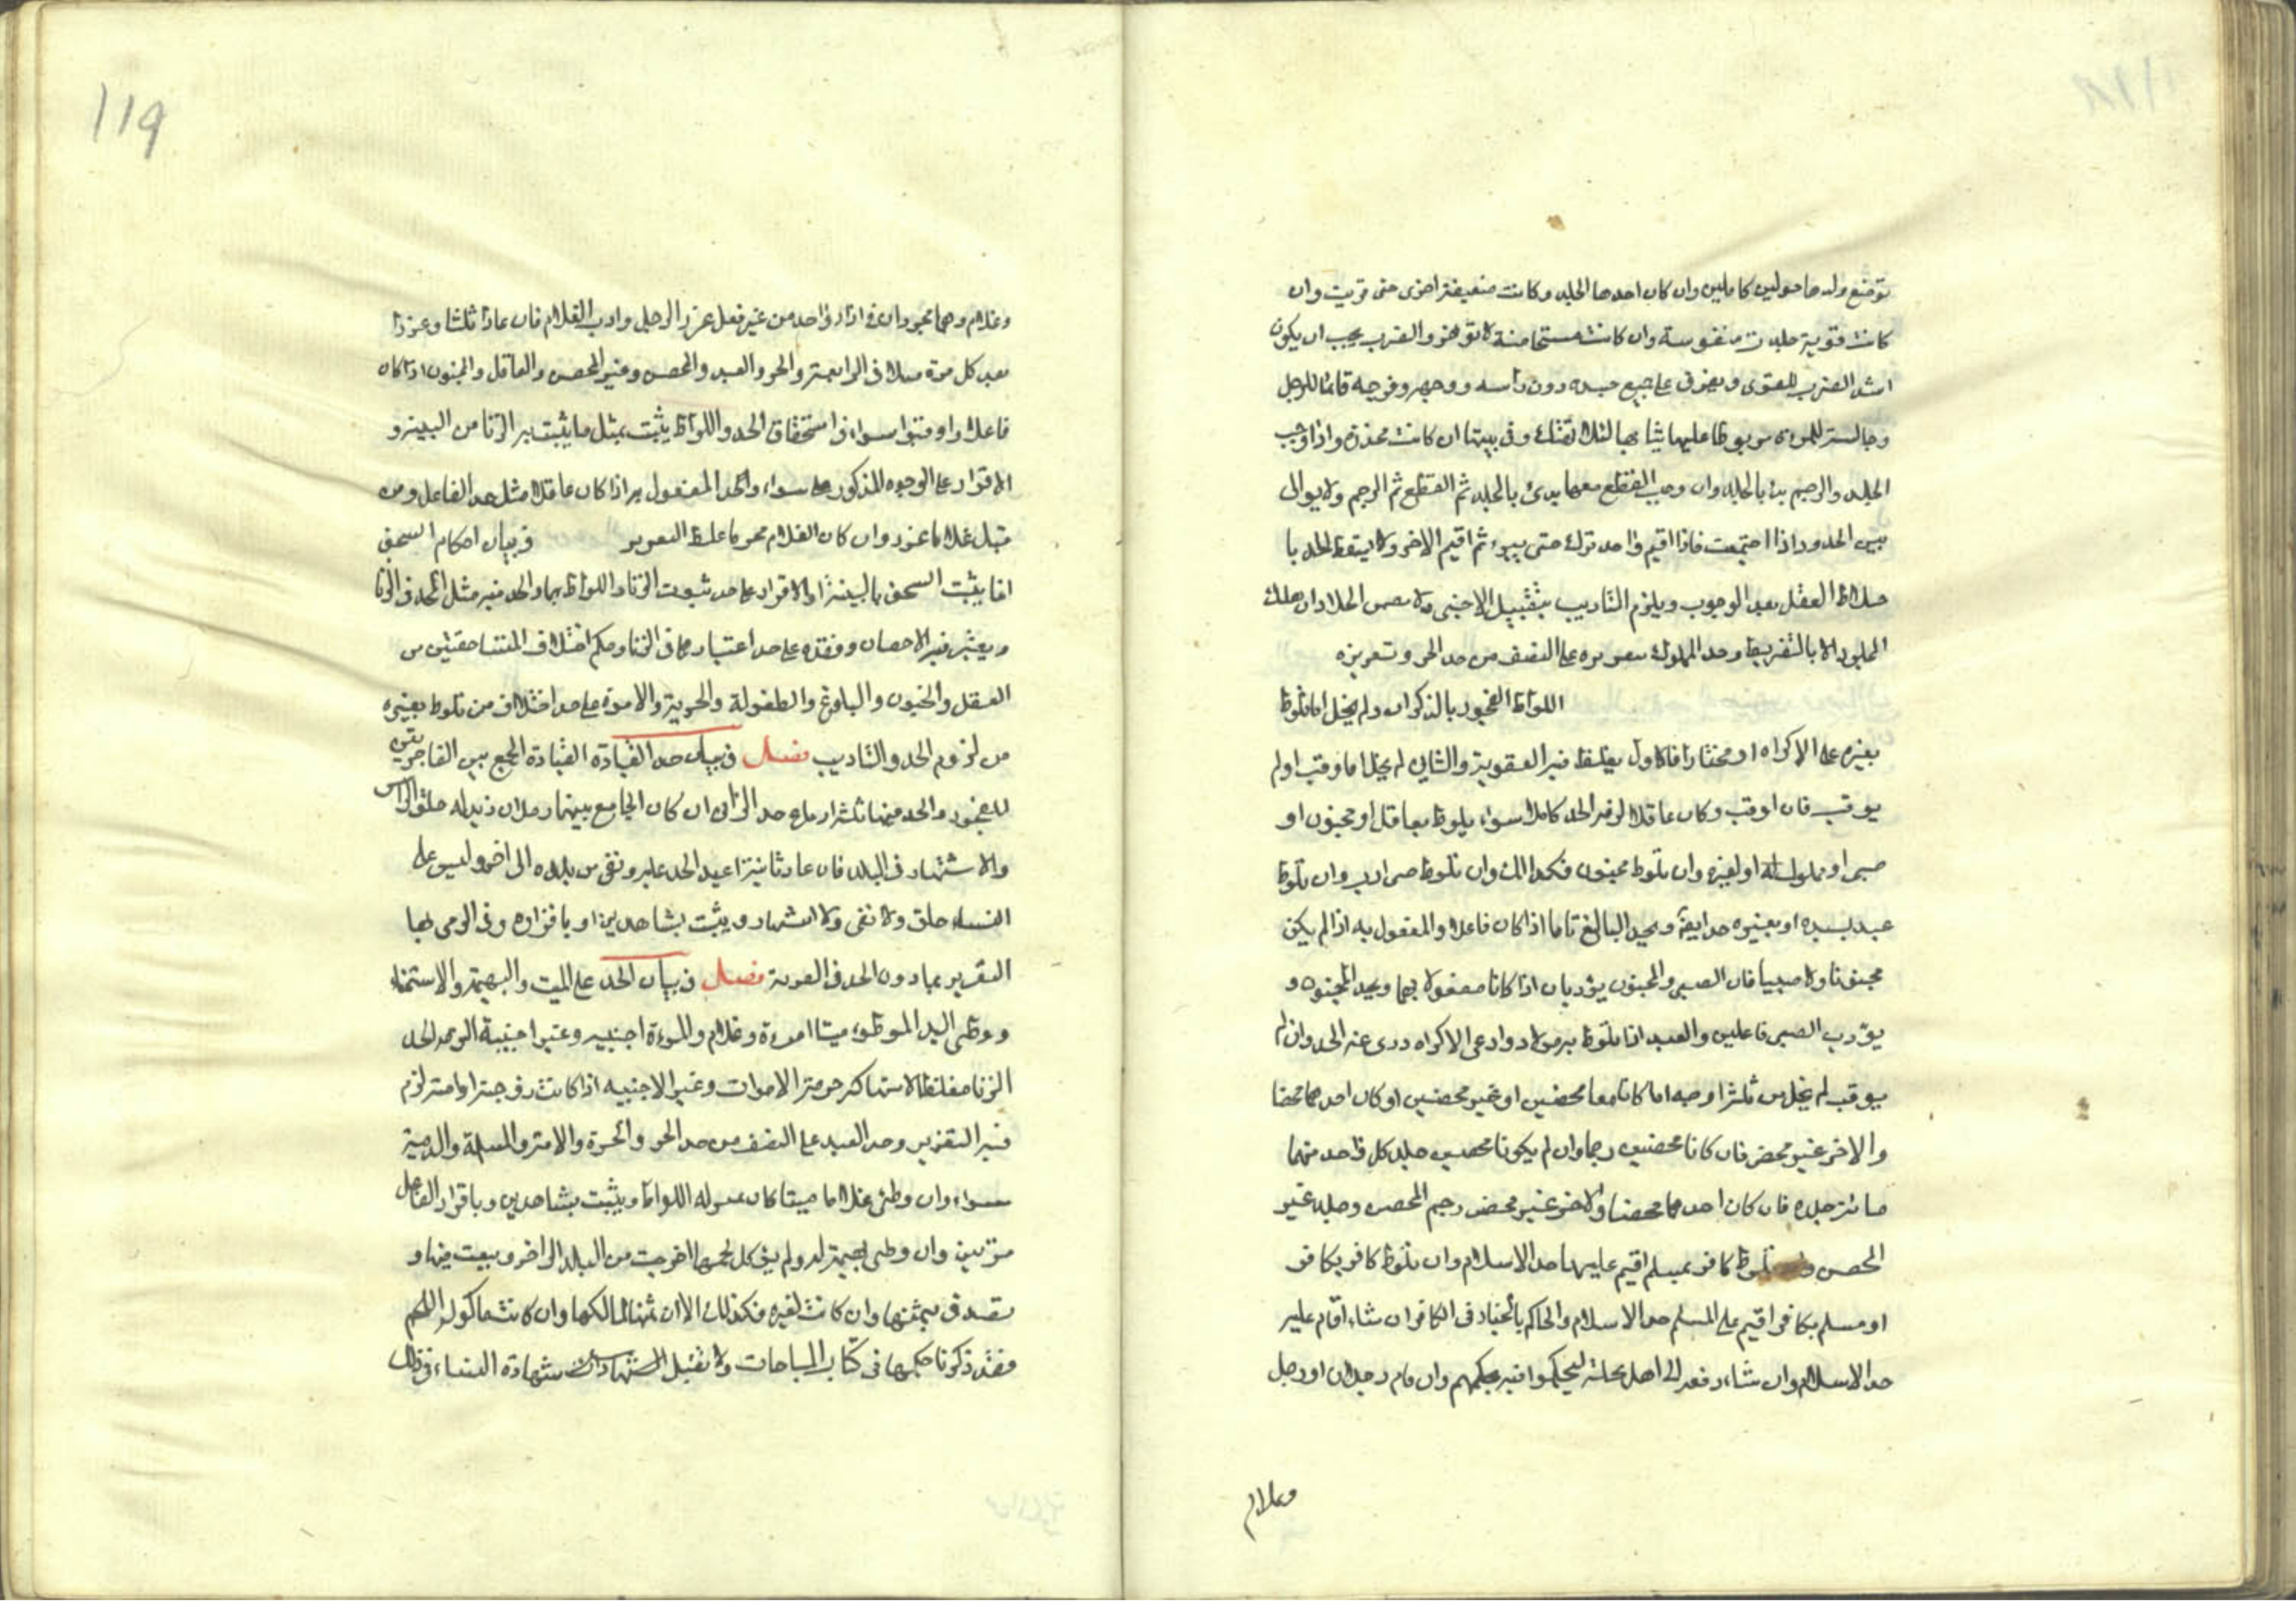 ترضع ولدها حولين كاملين وان كان احدها الجلد وكانت ضعيفة اخرى حتى قويت وان
كانت قوية جلدت منفوسة وان كانت مستحاضة لا تؤخر والضرب يجب ان يكون
اشد الضرب للقوى ويفرق على جميع جسده دون رأسه ووجهه وفرجه قائما للرجل
وجالسة للمرءة مربوطا عليها ثيابها لئلا تهتك وفى بيتها ان كانت مخدرة واذا وجب
الجلد والرجم بدئ بالجلد وان وجب القطع معهما بدئ بالجلد ثم القطع ثم الرجم ولا يوالى
بين الحدود اذا اجتمعت فاذا اقيم واحد ترك حتى يبرء ثم اقيم الاخر ولا يسقط الحد با
ختلاط العقل بعد الوجوب ويلزم التاديب بتقبيل الاجنبى ولا يضمن الجلاد ان هلك
المجلود الا بالتفريط وحد المملوك وتعزيره على النصف من حد الحر وتعزيره
اللواط الفجور بالذكران ولم يخل اما تلوط
بغيره على الاكراه او مختارا فالاول يغلظ فيه العقوبة والثانى لم يخل اما اوقب او لم
يوقب فان اوقب وكان عاقلا لزمه الحد كاملا سواء يلوط بعاقل او مجنون او
صبى او مملوك له او لغيره وان تلوط مجنون فكذلك وان تلوط صبى ادب وان تلوط
عبد بسيده او بغيره حد ايضا ويحد البالغ تاما اذا كان فاعلا والمفعول به اذا لم يكن
مجنونا ولا صبيا فان الصبى والمجنون يؤدبان اذا كانا مفعولا بهما ويحد المجنون و
يؤدب الصبى فاعلين والعبد اذا تلوط به مولاه وادعى الاكراه درى عنه الحد وان لم
يوقب لم يخل من ثلثة اوجه اما كانا معا محصنين او غير محصنين او كان احدهما محصنا
والاخر غير محصن فان كانا محصنين رجما وان لم يكونا محصنين جلد كل واحد منهما
مائة جلدة فان كان احدهما محصنا والاخر غير محصن رجم المحصن وجلد غير
المحصن تلوط كافر بمسلم اقيم عليهما حد الاسلام وان تلوط كافر بكافر
او مسلم بكافر اقيم على المسلم حد الاسلام والحاكم بالخيار فى الكافر ان شاء اقام عليه
حد الاسلام وان شاء دفعه الى اهل محلته ليحكموا فيه بحكمهم وان نام رجلان او رجل
وغلام
119
وغلام وهما مجردان فى ازار واحد من غير فعل عزر الرجل وادب الغلام فان عادا ثلثا وعزرا
بعد كل مرة قتلا فى الرابعة والحر والعبد والمحصن وغير المحصن والعاقل والمجنون اذا كان
فاعلا واوقبوا سواء فى استحقاق الحد واللواط يثبت بمثل ما يثبت به الزنا من البينة و
الاقرار على الوجوه المذكورة سواء والحد المفعول به اذا كان عاقلا مثل حد الفاعل ومن
قبل غلاما عزر وان كان الغلام محرما غلظ التعزير فى بيان احكام السحق
انما يثبت السحق بالبينة او الاقرار على حد ثبوت الزنا واللواط بهما والحد فيه مثل الحد فى الزنا
ويعتبر فيه الاحصان وفقده على حد اعتبارهما فى الزنا وحكم اختلاف المتساحقتين من
العقل والجنون والبلوغ والطفولة والحرية والاموة على حد اختلاف من تلوط بغيره
من لزوم الحد والتاديب فصل فى بيان حد القيادة القيادة الجمع بين الفاجرين
للفجور والحد فيها ثلثة ارباع حد الزانى ان كان الجامع بينهما رجلان زيد له حلق الراس
والاشتهار فى البلد فان عاد ثانية اعيد الحد عليه ونفى من بلده الى اخر وليس على
النساء حلق ولا نفى ولا اشتهار ويثبت بشاهدين او باقراره وفى الرمى بها
التعزير بما دون الحد فى الفرية فصل فى بيان الحد على الميت والبهيمة والاستمناء
ووطى اليد الموطوء ميتا امرءة وغلام والمرءة اجنبية وغير اجنبية الزم الحد
الزنا مغلظا لانتهاكه حرمة الاموات وغير الاجنبيه اذا كانت زوجته او امته لزم
فيه التعزير وحد العبد على النصف من حد الحر والحرة والامة والمسلمة والذمية
سواء وان وطئ غلاما ميتا كان عليه اللواط ويثبت بشاهدين وباقرار الفاعل
مرتين وان وطى بهيمة له ولم يؤكل لحمها اخرجت من البلد الى اخر وبيعت فيها و
تصدق بثمنها وان كانت لغيره فكذلك الا ان ثمنها لمالكها وان كانت ماكولة اللحم
فقد ذكرنا حكمها فى كتاب المباحات ولا تقبل شهادة النساء فى ذلك